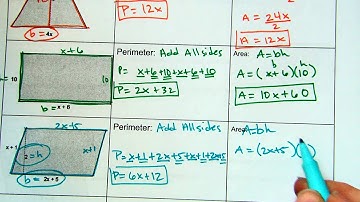 P = 12x
A = 24x
2
A = 12x
b = 4x
x+6
= 10
10
b = x + 6
Perimeter: Add All sides
P = x+6+10+x+6+10
P = 2x + 32
Area: A = bh
b h
A = (x+6)(10)
A = 10x+60
2x+5
x + 1
2 = h
x+1
b = 2x + 5
Perimeter: Add All sides
P = x+1+2x+5+x+1+2x+5
P = 6x+12
Area: A = bh
A = (2x+5)( )